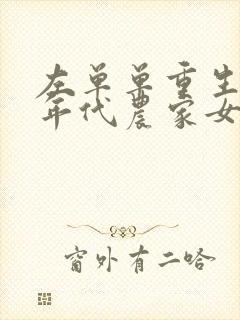 左单单重生
年代农家女
窗外有二哈